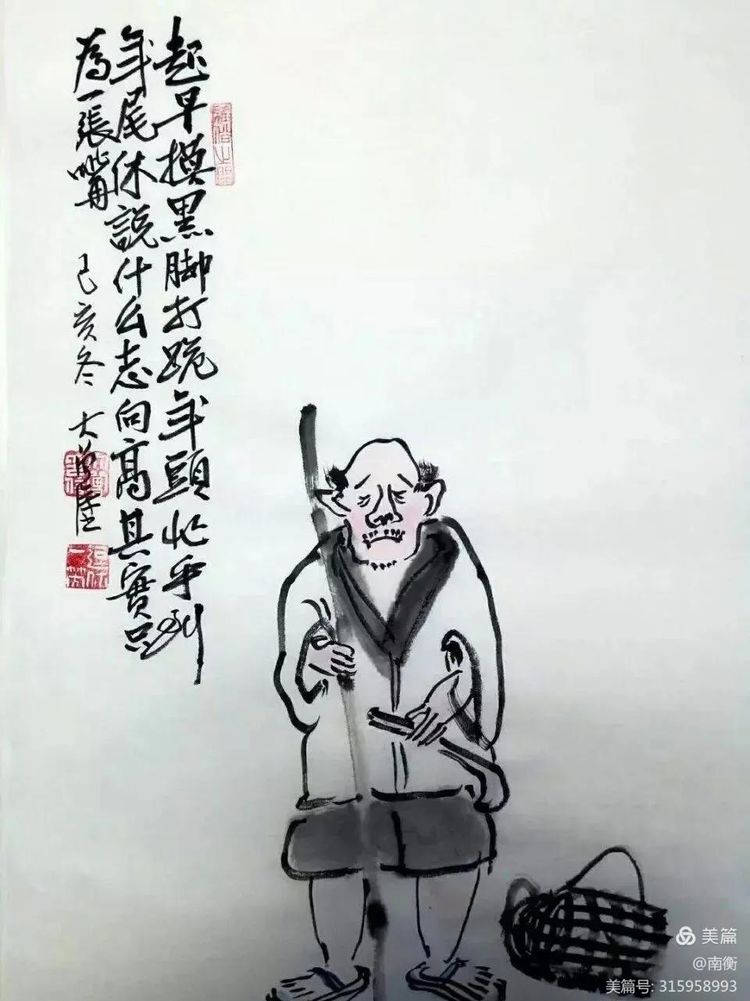 起早摸黑脚打跪年頭忙乎到
年尾休說什么志向高其實只
為一張嘴 己亥冬 大
美篇
@南衡
美篇号: 315958993